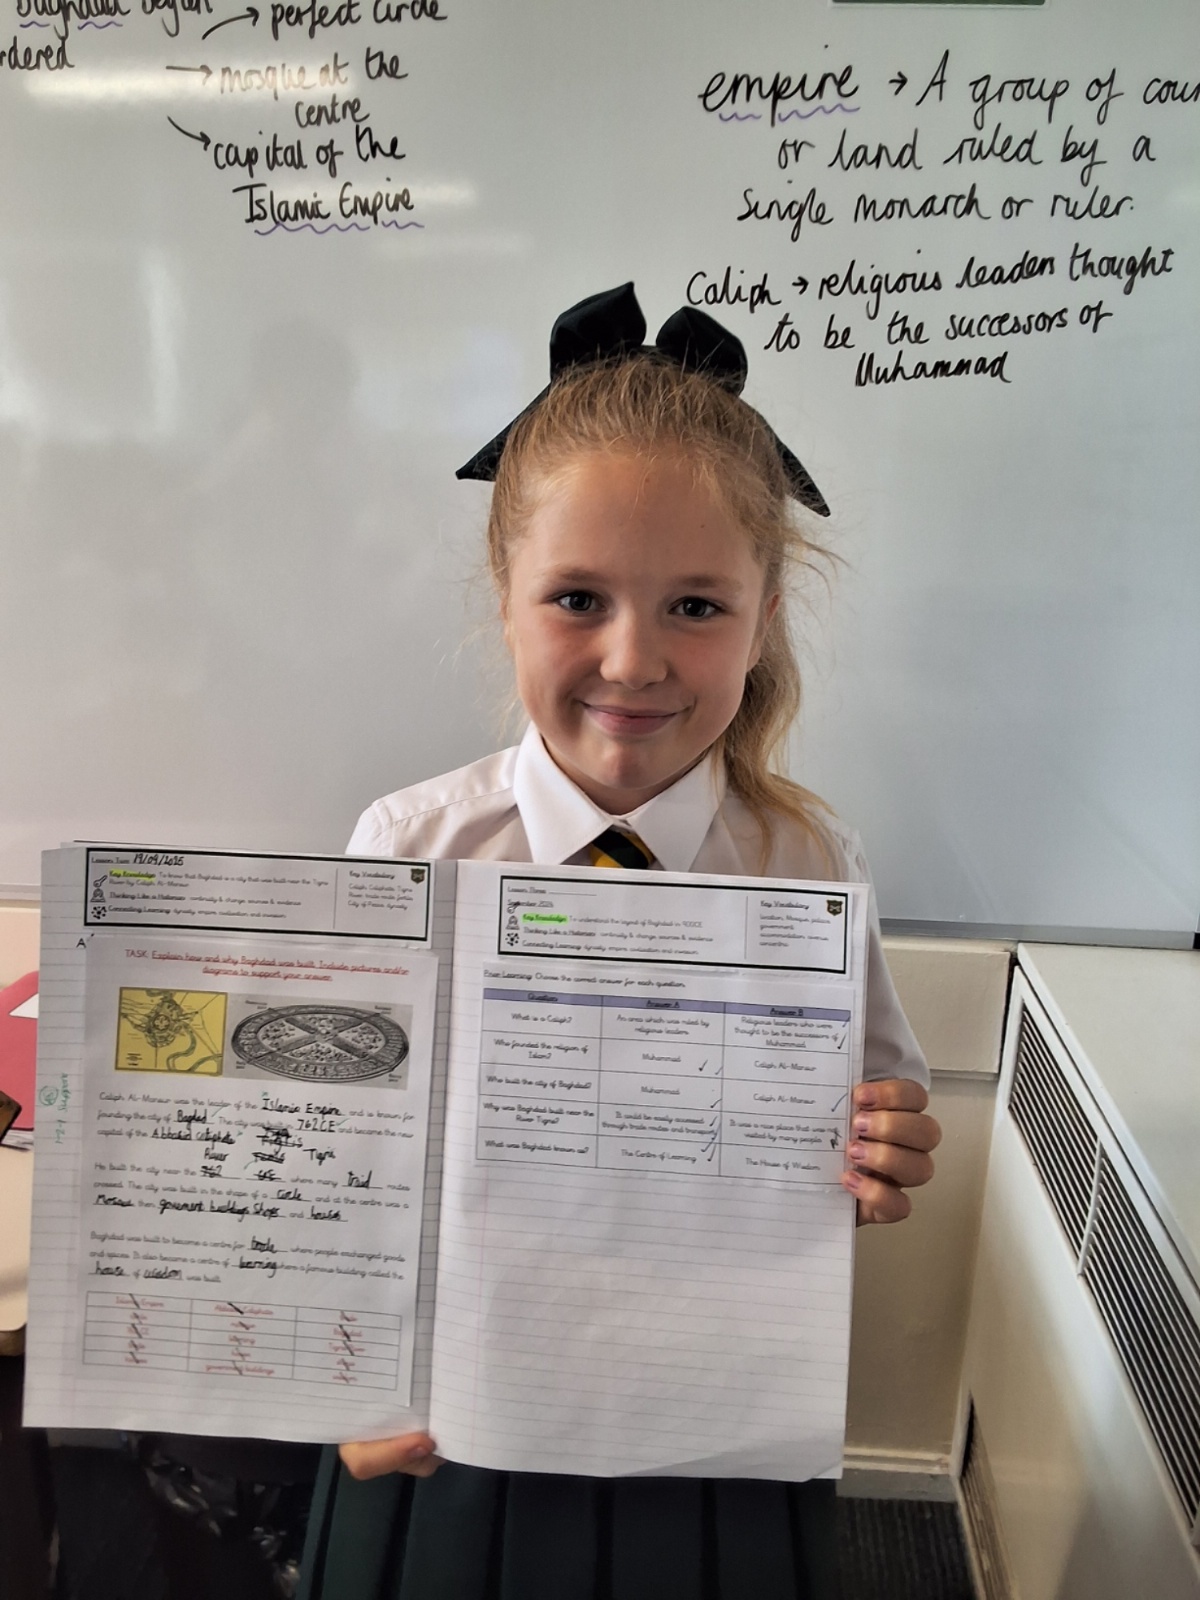 Baghdad design
→ perfect circle
→ mosque at the
centre
→ capital of the
Islamic Empire
empire → A group of
or land ruled by a
single monarch or ruler.
Caliph → religious leaders thought
to be the successors of
Muhammad
19/09/2025
Key Knowledge: To know that Baghdad is a city that was built near the Tigris
River by Caliph Al-Mansur
Thinking Like a Historian: continuity & change, sources & evidence
Connecting Learning: dynasty, empire, civilisation and invasion
Key Vocabulary
TASK: Explain how and why Baghdad was built. Include pictures and/or
diagrams to support your answer.
Caliph Al-Mansur was the leader of the Islamic Empire and is known for
founding the city of Bagdad. The city was built in 762CE and became the new
capital of the
River Tigris
He built the city near the 762 where many traid routes
crossed. The city was built in the shape of a circle and at the centre was a
Mosque then goverment buildings Shops and houses
Baghdad was built to become a centre for trade where people exchanged goods
and spices. It also became a centre of learning where a famous building called the
house of wisdom was built.
Islamic Empire
government buildings
Support
Key Knowledge: To understand the layout of Baghdad in
Thinking Like a Historian: continuity & change, sources & evidence
Connecting Learning: dynasty, empire, civilisation and invasion
Key Vocabulary
Prior Learning: Choose the correct answer for each question.
Question Answer A Answer B
What is a Caliph? An area which was ruled by
religious leaders Religious leaders who were
thought to be the successors of
Muhammad
Who founded the religion of
Islam? Muhammad Caliph Al-Mansur
Who built the city of Baghdad? Muhammad Caliph Al-Mansur
Why was Baghdad built near the
River Tigris? It could be easily accessed
through trade routes and transport It was a nice place that was not
visited by many people
What was Baghdad known as? The Centre of Learning The House of Wisdom